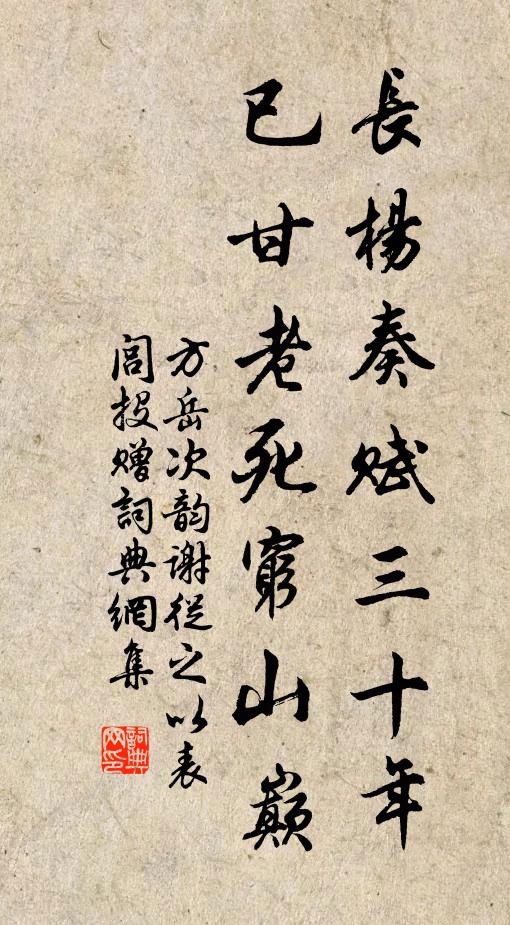 長楊奏賦三十年
已甘老死窮山巔
方岳次韵謝從之以表
閭投贈詞典網集
詞典
网印